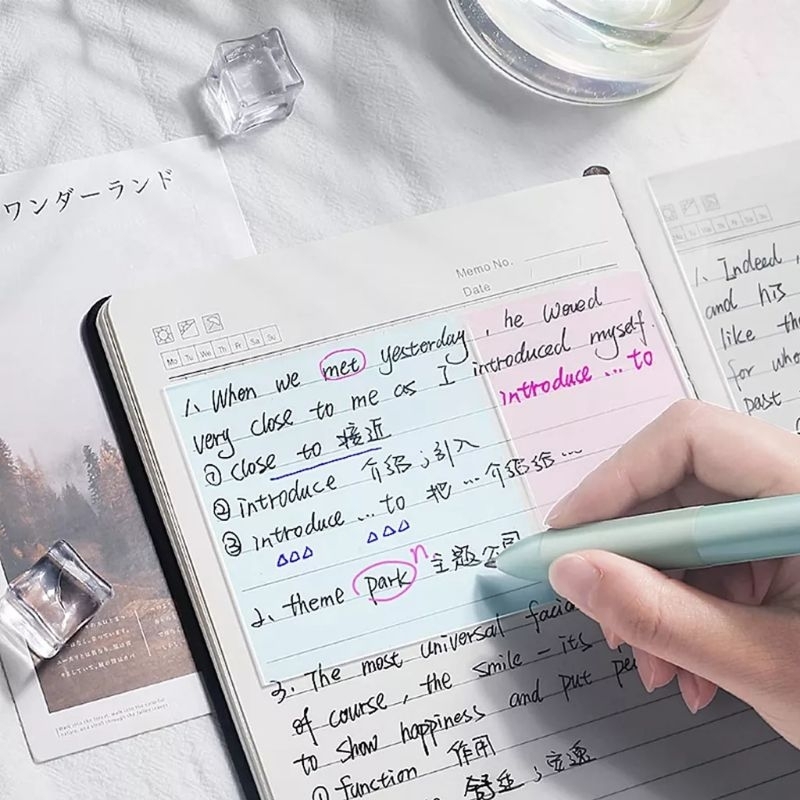 ワンダーランド
Memo No.
Date
Mo Tu We Th Fr Sa Su
1. When we met yesterday, he woved
very close to me as I introduced myself.
introduce ... to
① close to 接近
② introduce 介绍；引入
③ introduce ... to 把 ... 介绍给 ...
△△△ △△△
2. theme park n 主题公园
3. The most universal facia
of course, the smile - its
to show happiness and put pe
① function 作用
1. Indeed,
and his
like the
for who
past